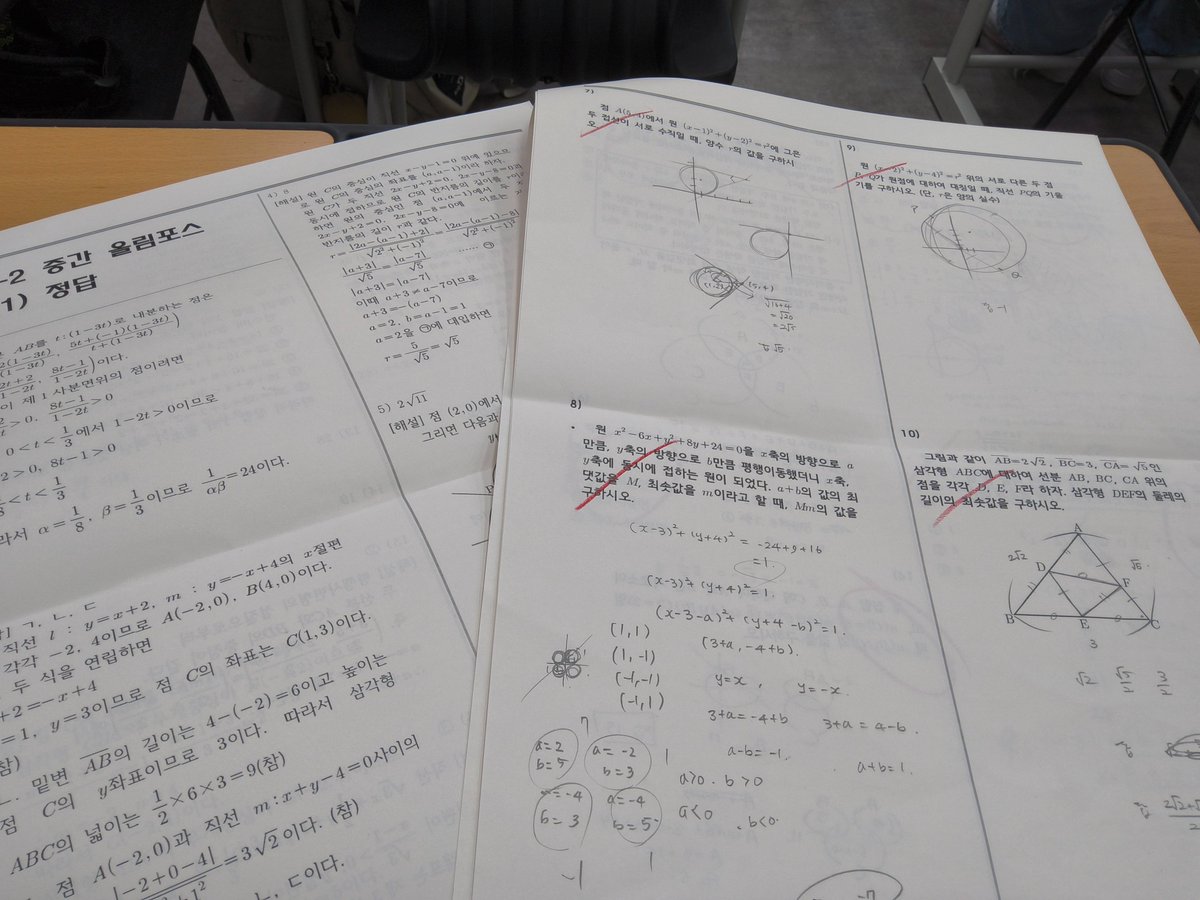 -2 중간 올림포스
1) 정답
AB를 t:(1-3t)로 내분하는 점은
이 제 1 사분면위의 점이려면
0<t<1/3에서 1-2t>0이므로
2>0, 8t-1>0
<t<1/3
라서 α=1/8, β=1/3이므로 1/αβ=24이다.
ㄱ, ㄴ, ㄷ
직선 l : y=x+2, m : y=-x+4의 x절편
각각 -2, 4이므로 A(-2,0), B(4,0)이다.
두 식을 연립하면
+2=-x+4
=1, y=3이므로 점 C의 좌표는 C(1,3)이다.
참)
밑변 AB의 길이는 4-(-2)=6이고 높이는
점 C의 y좌표이므로 3이다. 따라서 삼각형
ABC의 넓이는 1/2×6×3=9(참)
점 A(-2,0)과 직선 m:x+y-4=0사이의
|-2+0-4|
=3√2이다. (참)
ㄴ, ㄷ이다.
4) 8
[해설] 원 C의 중심이 직선 x-y-1=0 위에 있으므
로 원 C의 중심의 좌표를 (a,a-1)이라 하자.
원 C가 두 직선 2x-y+2=0, 2x-y-8=0과
동시에 접하므로 원 C의 반지름의 길이를
하면 원의 중심인 점 (a,a-1)에서 두
2x-y+2=0, 2x-y-8=0에 이르는
반지름의 길이 r과 같다.
r=|2a-(a-1)+2|/√2²+(-1)²=|2a-(a-1)-8|/√2²+(-1)²
|a+3|/√5=|a-7|/√5 ······ ㉠
|a+3|=|a-7|
이때 a+3≠a-7이므로
a+3=-(a-7)
a=2, b=a-1=1
a=2을 ㉠에 대입하면
r=5/√5=√5
5) 2√11
[해설] 점 (2,0)에서
그리면 다음과
7)
점 A(5,4)에서 원 (x-1)²+(y-2)²=r²에 그은
두 접선이 서로 수직일 때, 양수 r의 값을 구하시
오.
(5,4)
(1,2)
√16+4
=√20
=2√5
8)
원 x²-6x+y²+8y+24=0을 x축의 방향으로 a
만큼, y축의 방향으로 b만큼 평행이동했더니 x축,
y축에 동시에 접하는 원이 되었다. a+b의 값의 최
댓값을 M, 최솟값을 m이라고 할 때, Mm의 값을
구하시오.
(x-3)²+(y+4)²=-24+9+16
=1.
(x-3)²+(y+4)²=1.
(x-3-a)²+(y+4-b)²=1.
(1,1)
(3+a, -4+b).
(1,-1)
(-1,-1)
y=x, y=-x.
(-1,1)
3+a=-4+b 3+a=4-b.
7
a=2
b=5
a=-2
b=3
1
a-b=-1.
a+b=1.
a>0. b>0
a=-4
b=3
a=-4
b=5
a<0 . b<0.
-1
1
-7
9)
원 (x-2)²+(y-4)²=r² 위의 서로 다른 두 점
P, Q가 원점에 대하여 대칭일 때, 직선 PQ의 기울
기를 구하시오. (단, r은 양의 실수)
P
Q
10)
그림과 같이 AB=2√2, BC=3, CA=√5인
삼각형 ABC에 대하여 선분 AB, BC, CA 위의
점을 각각 D, E, F라 하자. 삼각형 DEF의 둘레의
길이의 최솟값을 구하시오.
A
2√2
√5
D
F
B
E
C
3
√2 √5/2 3/2